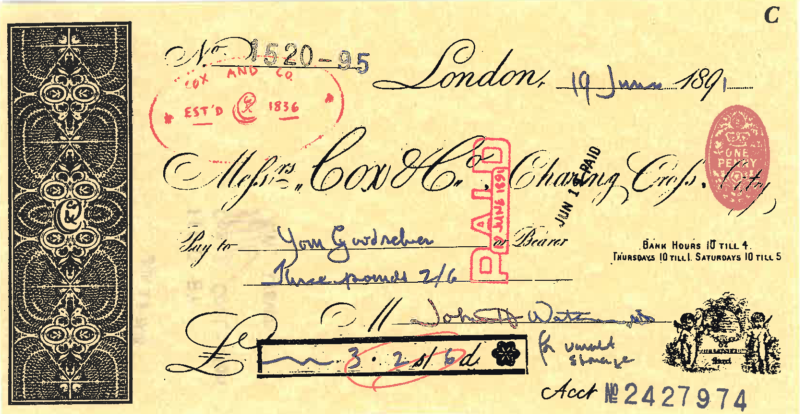 C
No 1520-95
London, 19 June 1891
COX AND CO.
EST'D 1836
ONE PENNY
Messrs. Cox & Co. Charing Cross. City
PAID
19 JUNE 1891
JUN 19 PAID
Pay to Yom or Bearer
Three pounds 2/6
BANK HOURS 10 TILL 4.
THURSDAYS 10 TILL 1. SATURDAYS 10 TILL 5
John H Watson MD
£ 3. 2s/6d.
for vault storage
Acct No 2427974